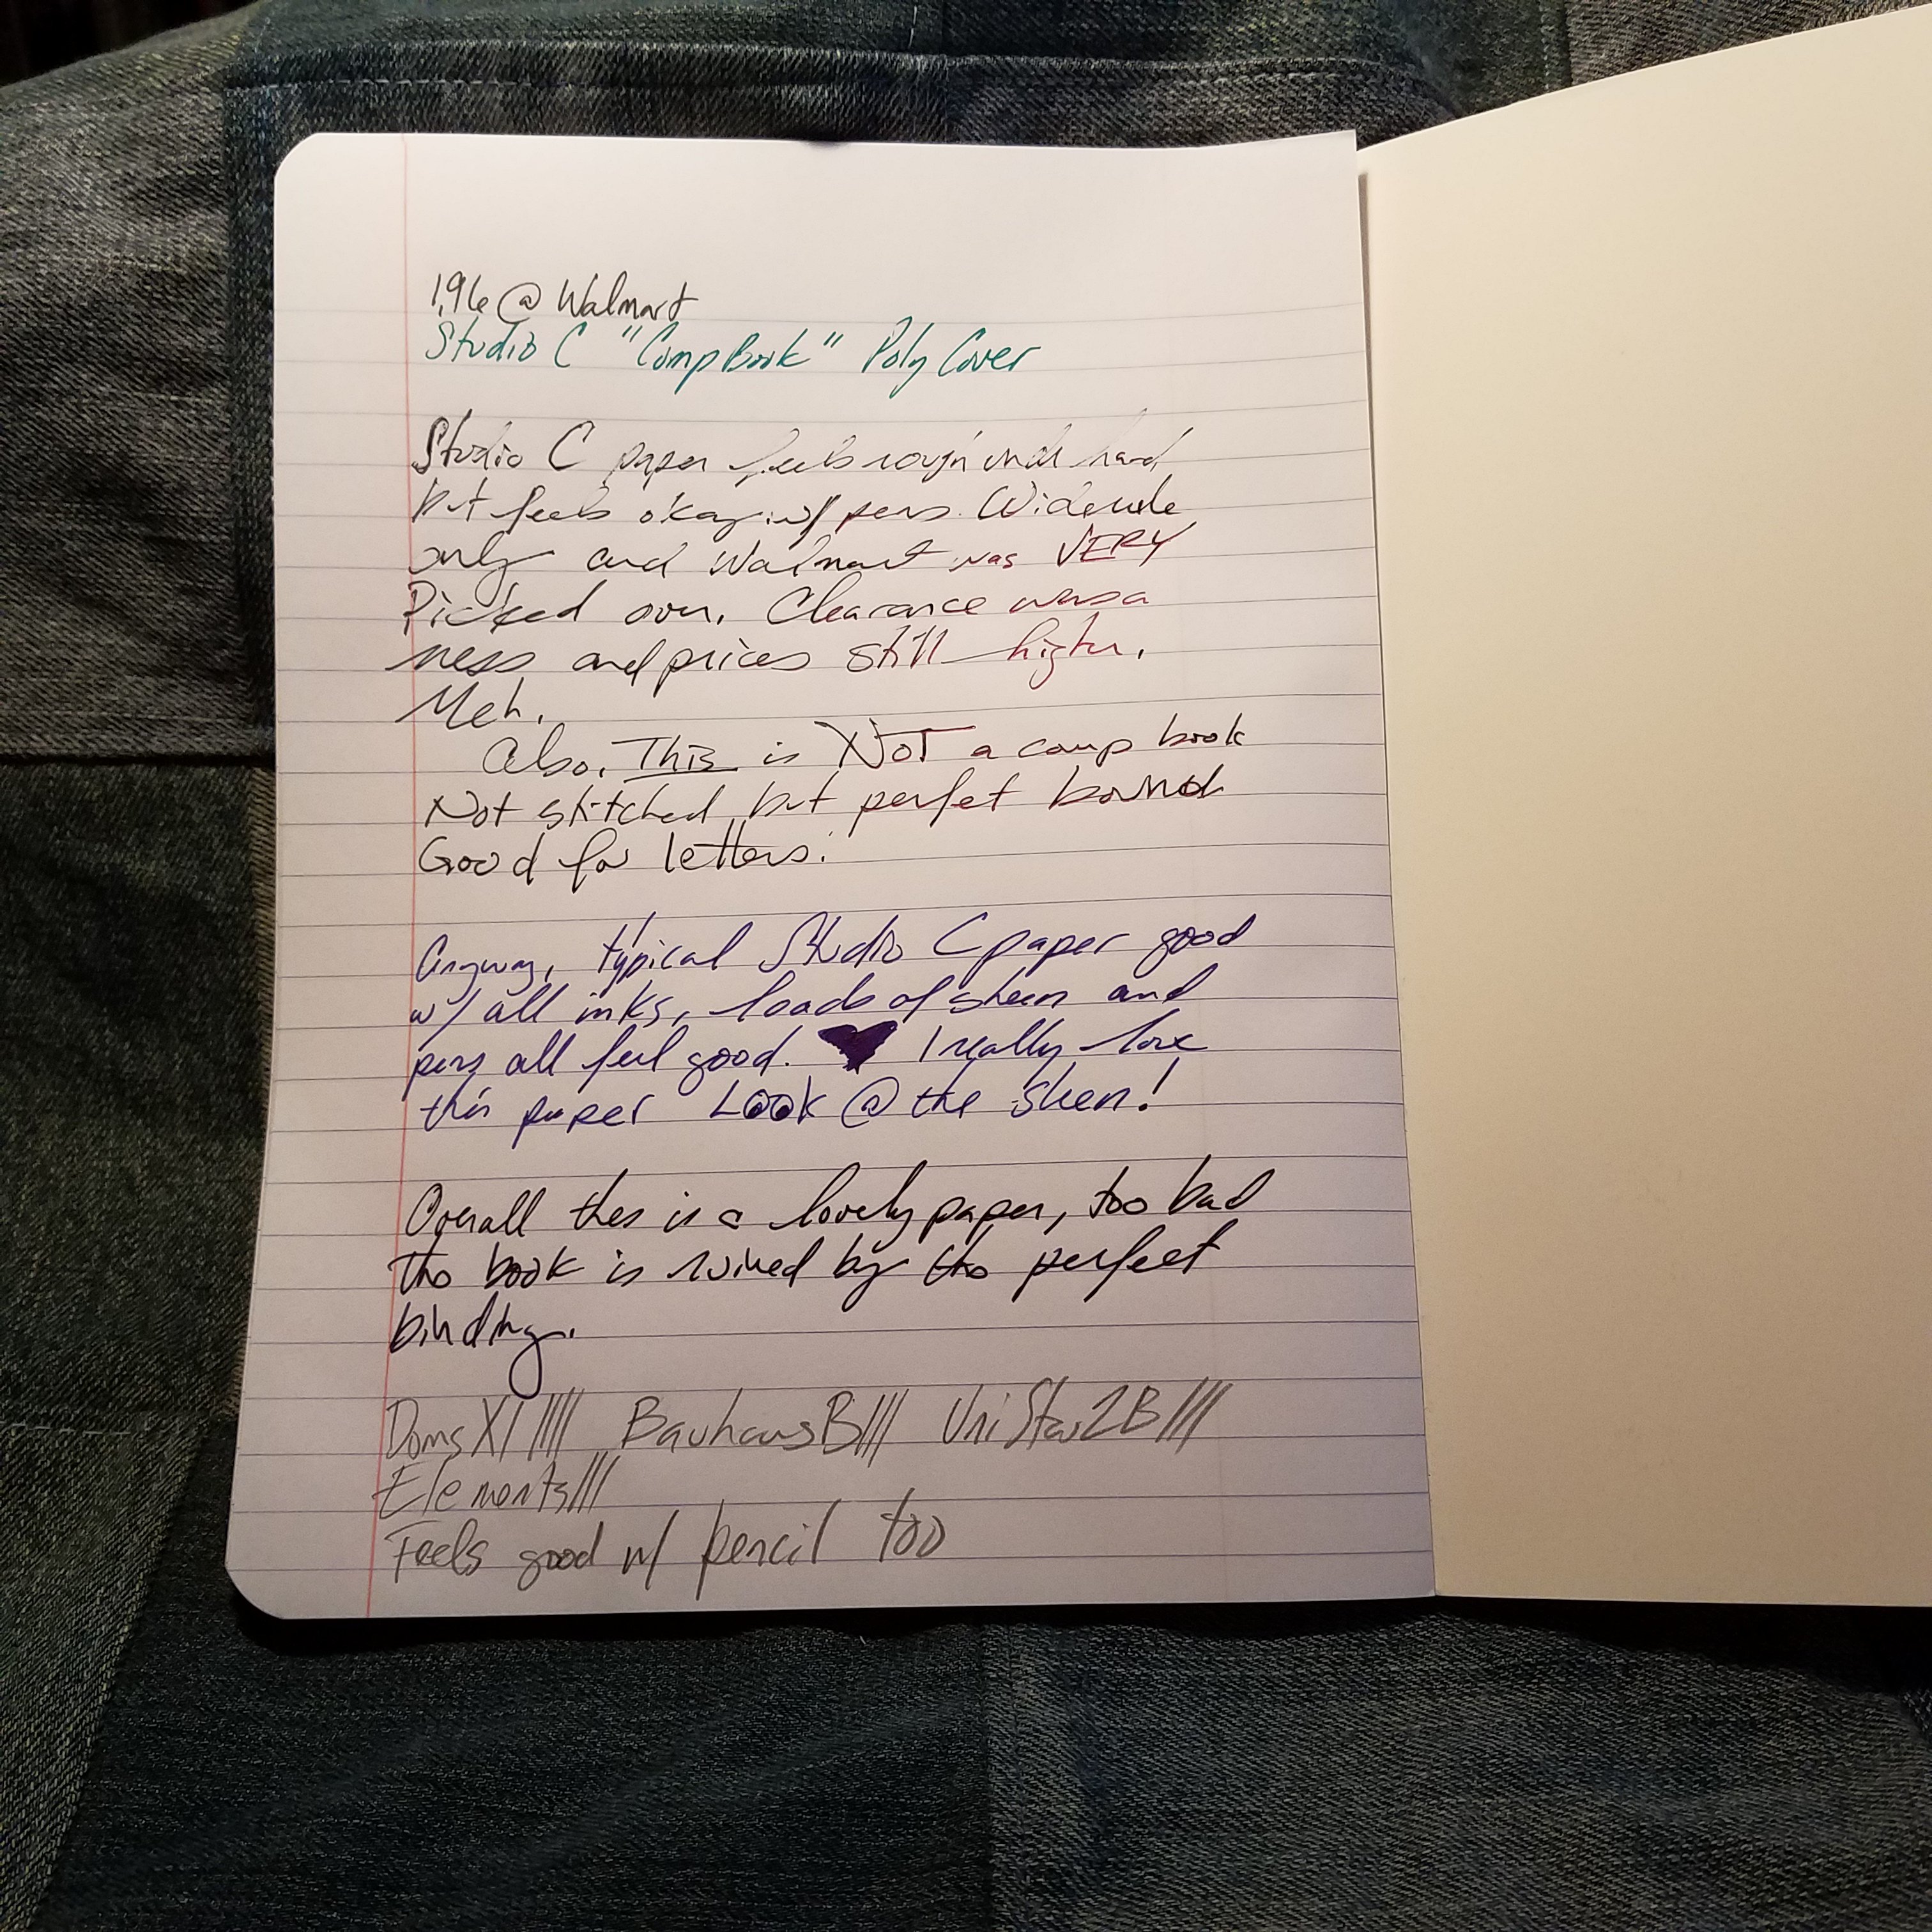 1.96 @ Walmart
Studio C "CompBook" Poly Cover
Studio C paper feels rough under hand
but feels okay w/ pens. Widerule
only and Walmart was VERY
Picked over. Clearance was a
mess and prices still higher.
Meh.
Also, This is NOT a comp book
Not stitched but perfet bound
Good for letters.
Anyway, typical Studio C paper good
w/ all inks, loads of sheen and
pens all feel good. ♥ I really love
this paper Look @ the sheen!
Overall this is a lovely paper, too bad
the book is ruined by the perfect
binding.
Doms X1 |||| Bauhaus B||| Uni Star 2B |||
Elements|||
Feels good w/ pencil too